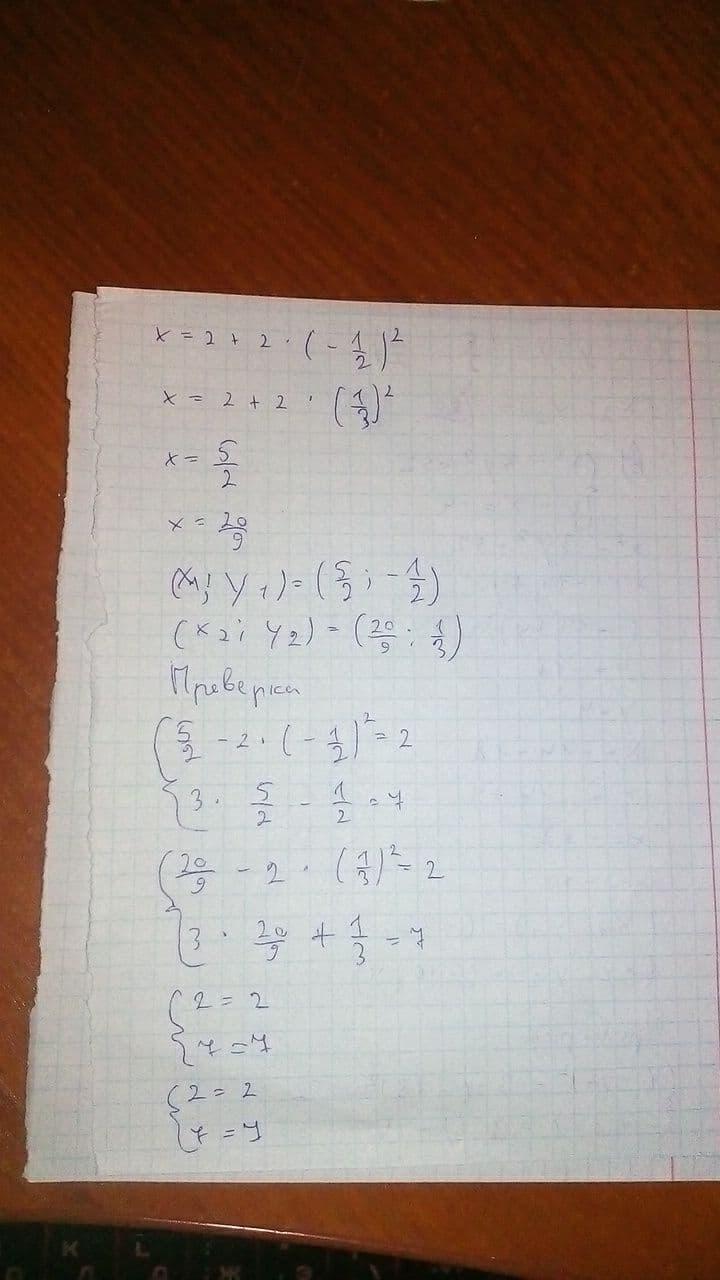 x = 2 + 2 · (- 1/2)²
x = 2 + 2 · (1/3)²
x = 5/2
x = 20/9
(x₁; y₁) = (5/2; - 1/2)
(x₂; y₂) = (20/9; 1/3)
Проверка
{ 5/2 - 2 · (- 1/2)² = 2
3 · 5/2 - 1/2 = 7
{ 20/9 - 2 · (1/3)² = 2
3 · 20/9 + 1/3 = 7
{ 2 = 2
7 = 7
{ 2 = 2
7 = 7
K L
Л Д Ж Э